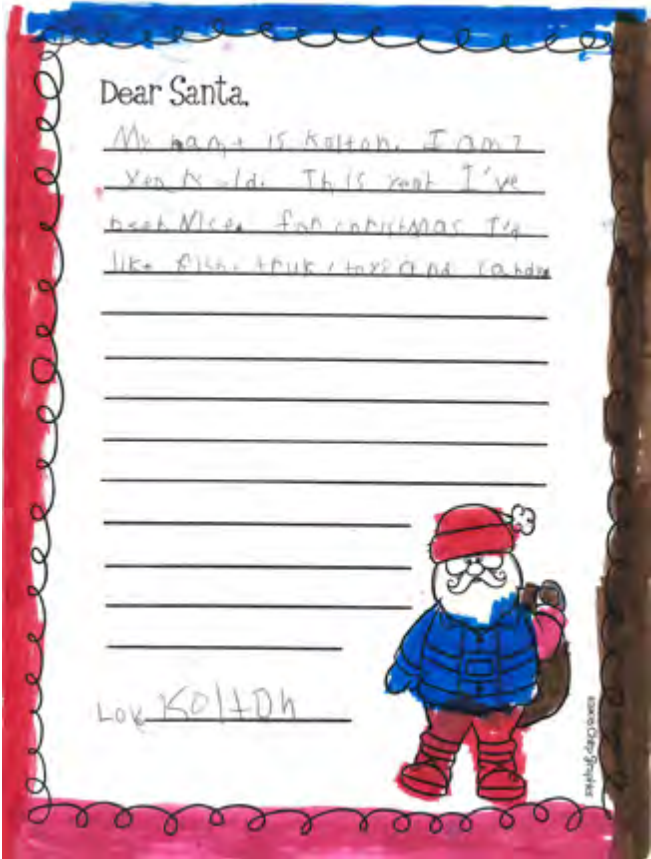 Dear Santa,
My name is Kolton. I am 7
years old. This year I've
been Nice. for christmas I'd
like fish, truk, toys and candy
Love Kolton